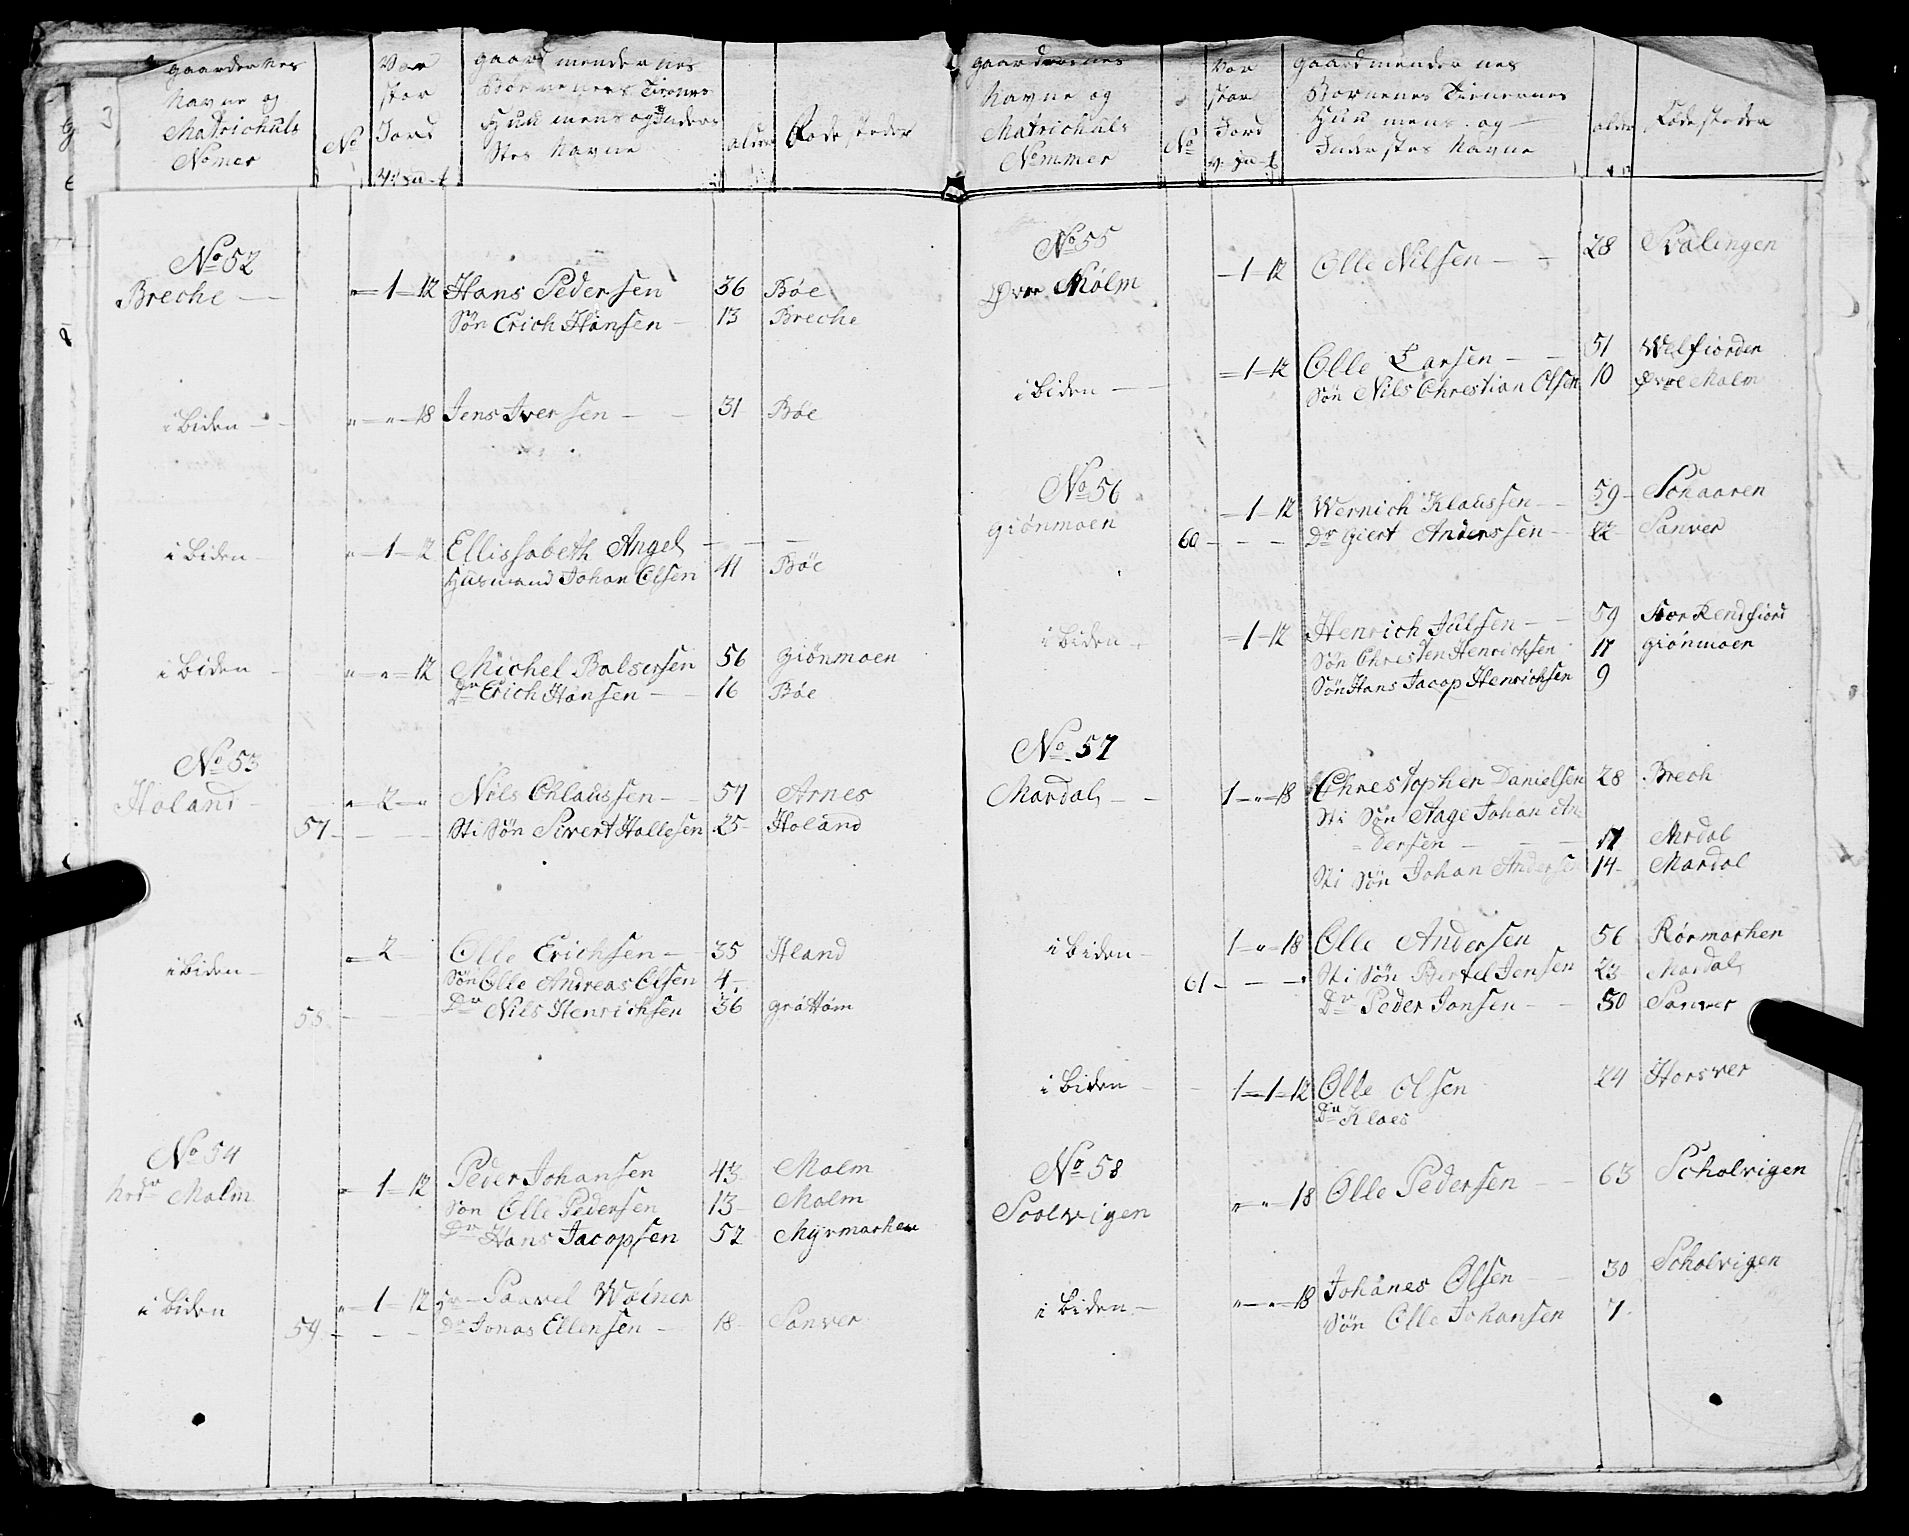 Gaardernes Navne og Matrichuls Nomer | No | Vor stor Jord V: Pd - f | Gaard mendernes Børneners Tienes Huus mens og Inder Stes Navne | alder | Føde steder
No 52
Breche — | " – 1 – 12 | Hans Pedersen | 36 | Bøe
Søn Erich Hansen – | 13 | Breche
i biden – – | " – " – 18 | Jens Iversen – – | 31 | Bøe
i biden – | " – 1 – 12 | Ellissabeth Angel – – –
Husmand Johan Olsen | 41 | Bøe
i biden – | " – " – 12 | Michel Balsersen | 56 | Giønmoen
Dr Erich Hansen – – | 16 | Bøe
No 53
Holand – – | " – 2 – " | Nils Chlaussen – – | 54 | Arnes
57 – – – – | Sti Søn Sivert Hallesen | 25 – | Holand
i biden – | " – 2 – | Olle Erichsen – | 35 | Hland
Søn Olle Andreas Olsen | 4 –
58 – – – | Dr Nils Henrichsen | 36 | grøttøm
No 54
Malm | " – 1 – 12 | Peder Johansen | 43 – | Malm
Søn Olle Pedersen | 13 – | Malm
Dr Hans Jacopsen | 52 | Myrmarken
i biden | " – 1 – 12 | Paavel Wøiner
59 – – – | Dr Jonas Ellensen – | 18 – | Sanver
Gaardernes Navne og Matrichuls Nommer | No | Vor stor Jord v: Pd - f | Gaardmendernes Børnenes Tienernes Huus mens og Inderstes Navne | alder | Føde steder
No 55
Øvre Malm | – 1 – 12 | Olle Nilsen – – | 28 | Svalingen
i biden – – | – 1 – 12 | Olle Larsen – – | 51 | Welfiorden
Søn Nils Chrestian Olsen | 10 | Øvre Malm
No 56
giønmoen | – 1 – 12 | Wernich Klaussen – – | 59 – | Schaaren
60 – – – | Dr Giert Anderssen – – | 12 – | Sanver
i biden – | – 1 – 12 | Henrich Julsen – – | 59 | Stor Rendfiord
Søn Chresten Henrichsen | 17 | giønmoen
Søn Hans Jacop Henrichsen | 9
No 57
Mardal – – | 1 – " – 18 | Chrestopher Danielsen | 28 | Brech
Sti Søn Aage Johan An
dersen – – – | 17 | Mrdal
Sti Søn Johan Anderse | 14 – | Mardal
i biden – | 1 – " – 18 | Olle Andersen | 56 | Rørmarken
61 – – – | Sti Søn Bertel Jensen | 23 – | Mardal
Dr Peder Jonsen – – | 50 | Sanver
i biden – – | 1 – 1 – 12 | Olle Olsen | 24 | Horsver
Dr Klaes
No 58
Scolvigen | " – " – 18 | Olle Pedersen – – | 63 | Scholvigen
i biden – | " – " – 18 | Johanes Olsen – – | 30 | Scholvigen
Søn Olle Johansen | 7 –